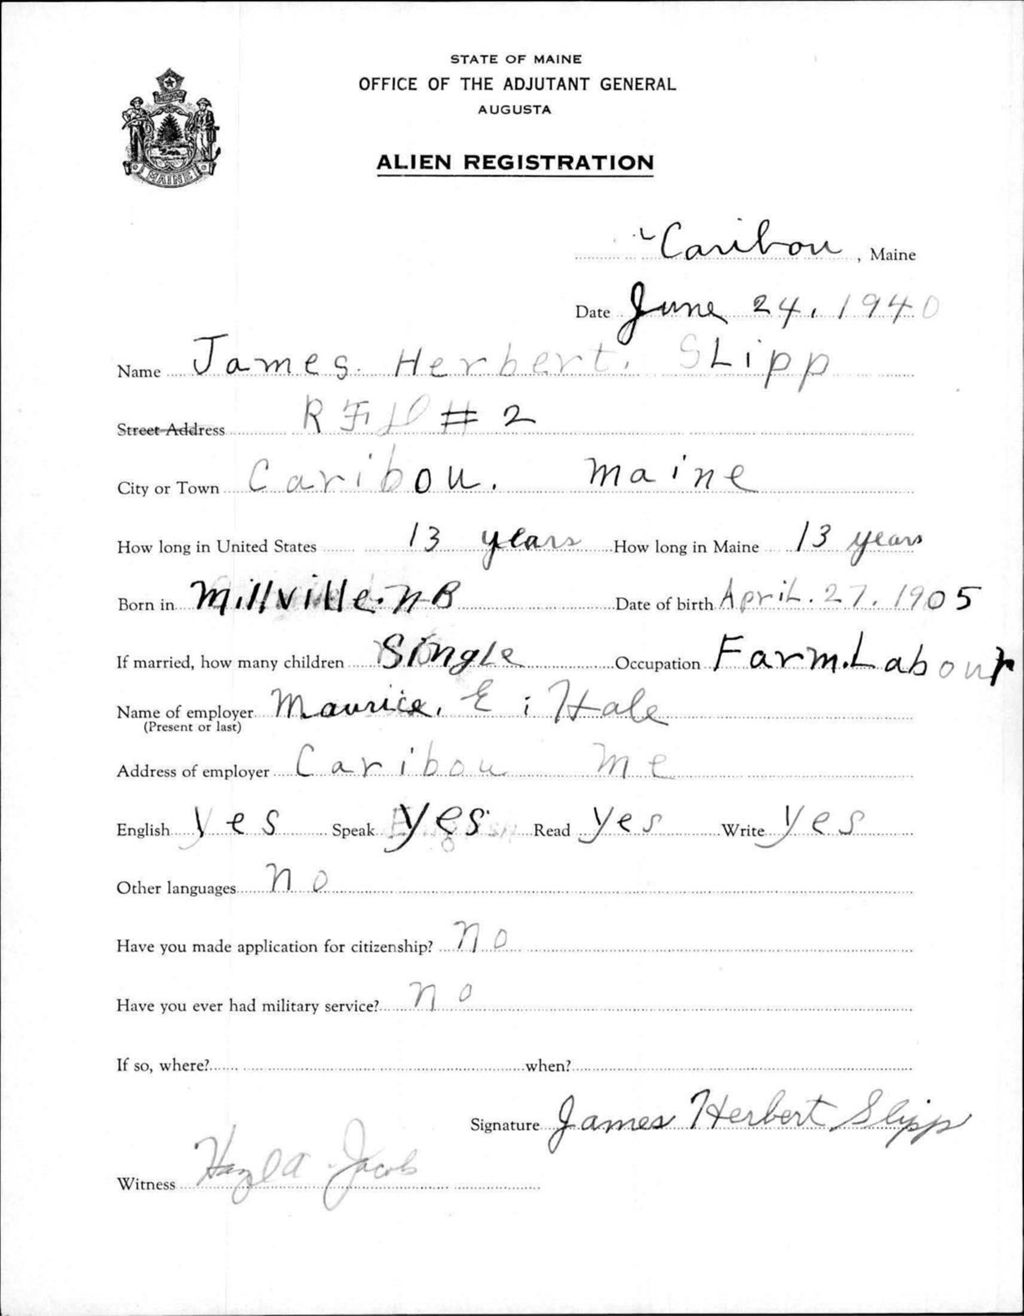 STATE OF MAINE
OFFICE OF THE ADJUTANT GENERAL
AUGUSTA
ALIEN REGISTRATION
MAINE
Caribou, Maine
Date June 24, 1940
Name James. Herbert. SLipp
Street Address RFD # 2
City or Town Caribou. Maine
How long in United States 13 years How long in Maine 13 years
Born in Millville. NB Date of birth ApriL. 27. 1905
If married, how many children SingLe Occupation Farm. Labour
Name of employer Maurice. E. Hale
(Present or last)
Address of employer Caribou Me
English Yes Speak Yes Read Yes Write Yes
Other languages No
Have you made application for citizenship? No
Have you ever had military service? No
If so, where? when?
Signature James Herbert Slipp
Witness Jacob